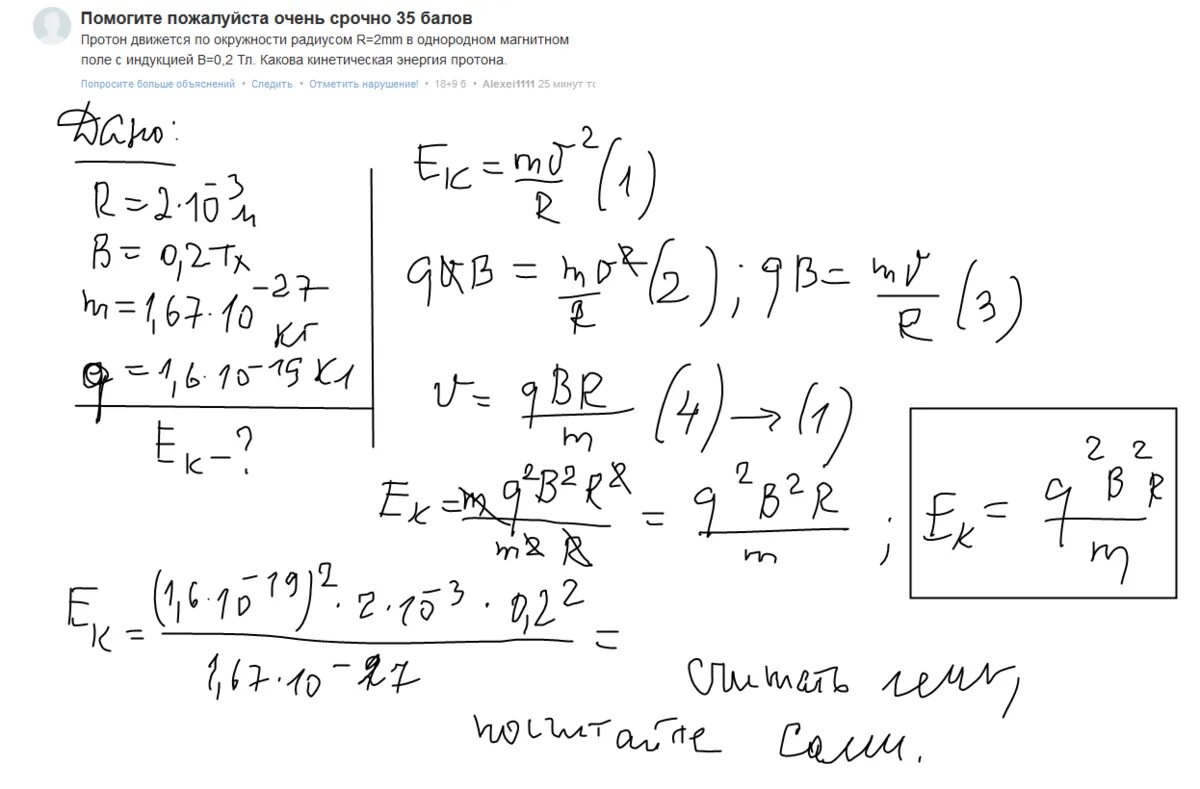 Помогите пожалуйста очень срочно 35 балов
Протон движется по окружности радиусом R=2mm в однородном магнитном
поле с индукцией B=0,2 Тл. Какова кинетическая энергия протона.
Попросите больше объяснений • Следить • Отметить нарушение! • 18+9 б • Alexei1111 25 минут
Дано:
R = 2·10⁻³ м
B = 0,2 Тл
m = 1,67·10⁻²⁷
кг
q = 1,6·10⁻¹⁹ Кл
Eк – ?
Eк = mυ²/R (1)
qυB = mυ²/R (2) ; qB = mυ/R (3)
υ = qBR/m (4) → (1)
Eк = m q²B²R²/m² R = q²B²R/m ; Eк = q²B²R/m
Eк = (1,6·10⁻¹⁹)² · 2·10⁻³ · 0,2²/1,67·10⁻²⁷ =
считать лень,
посчитайте сами.